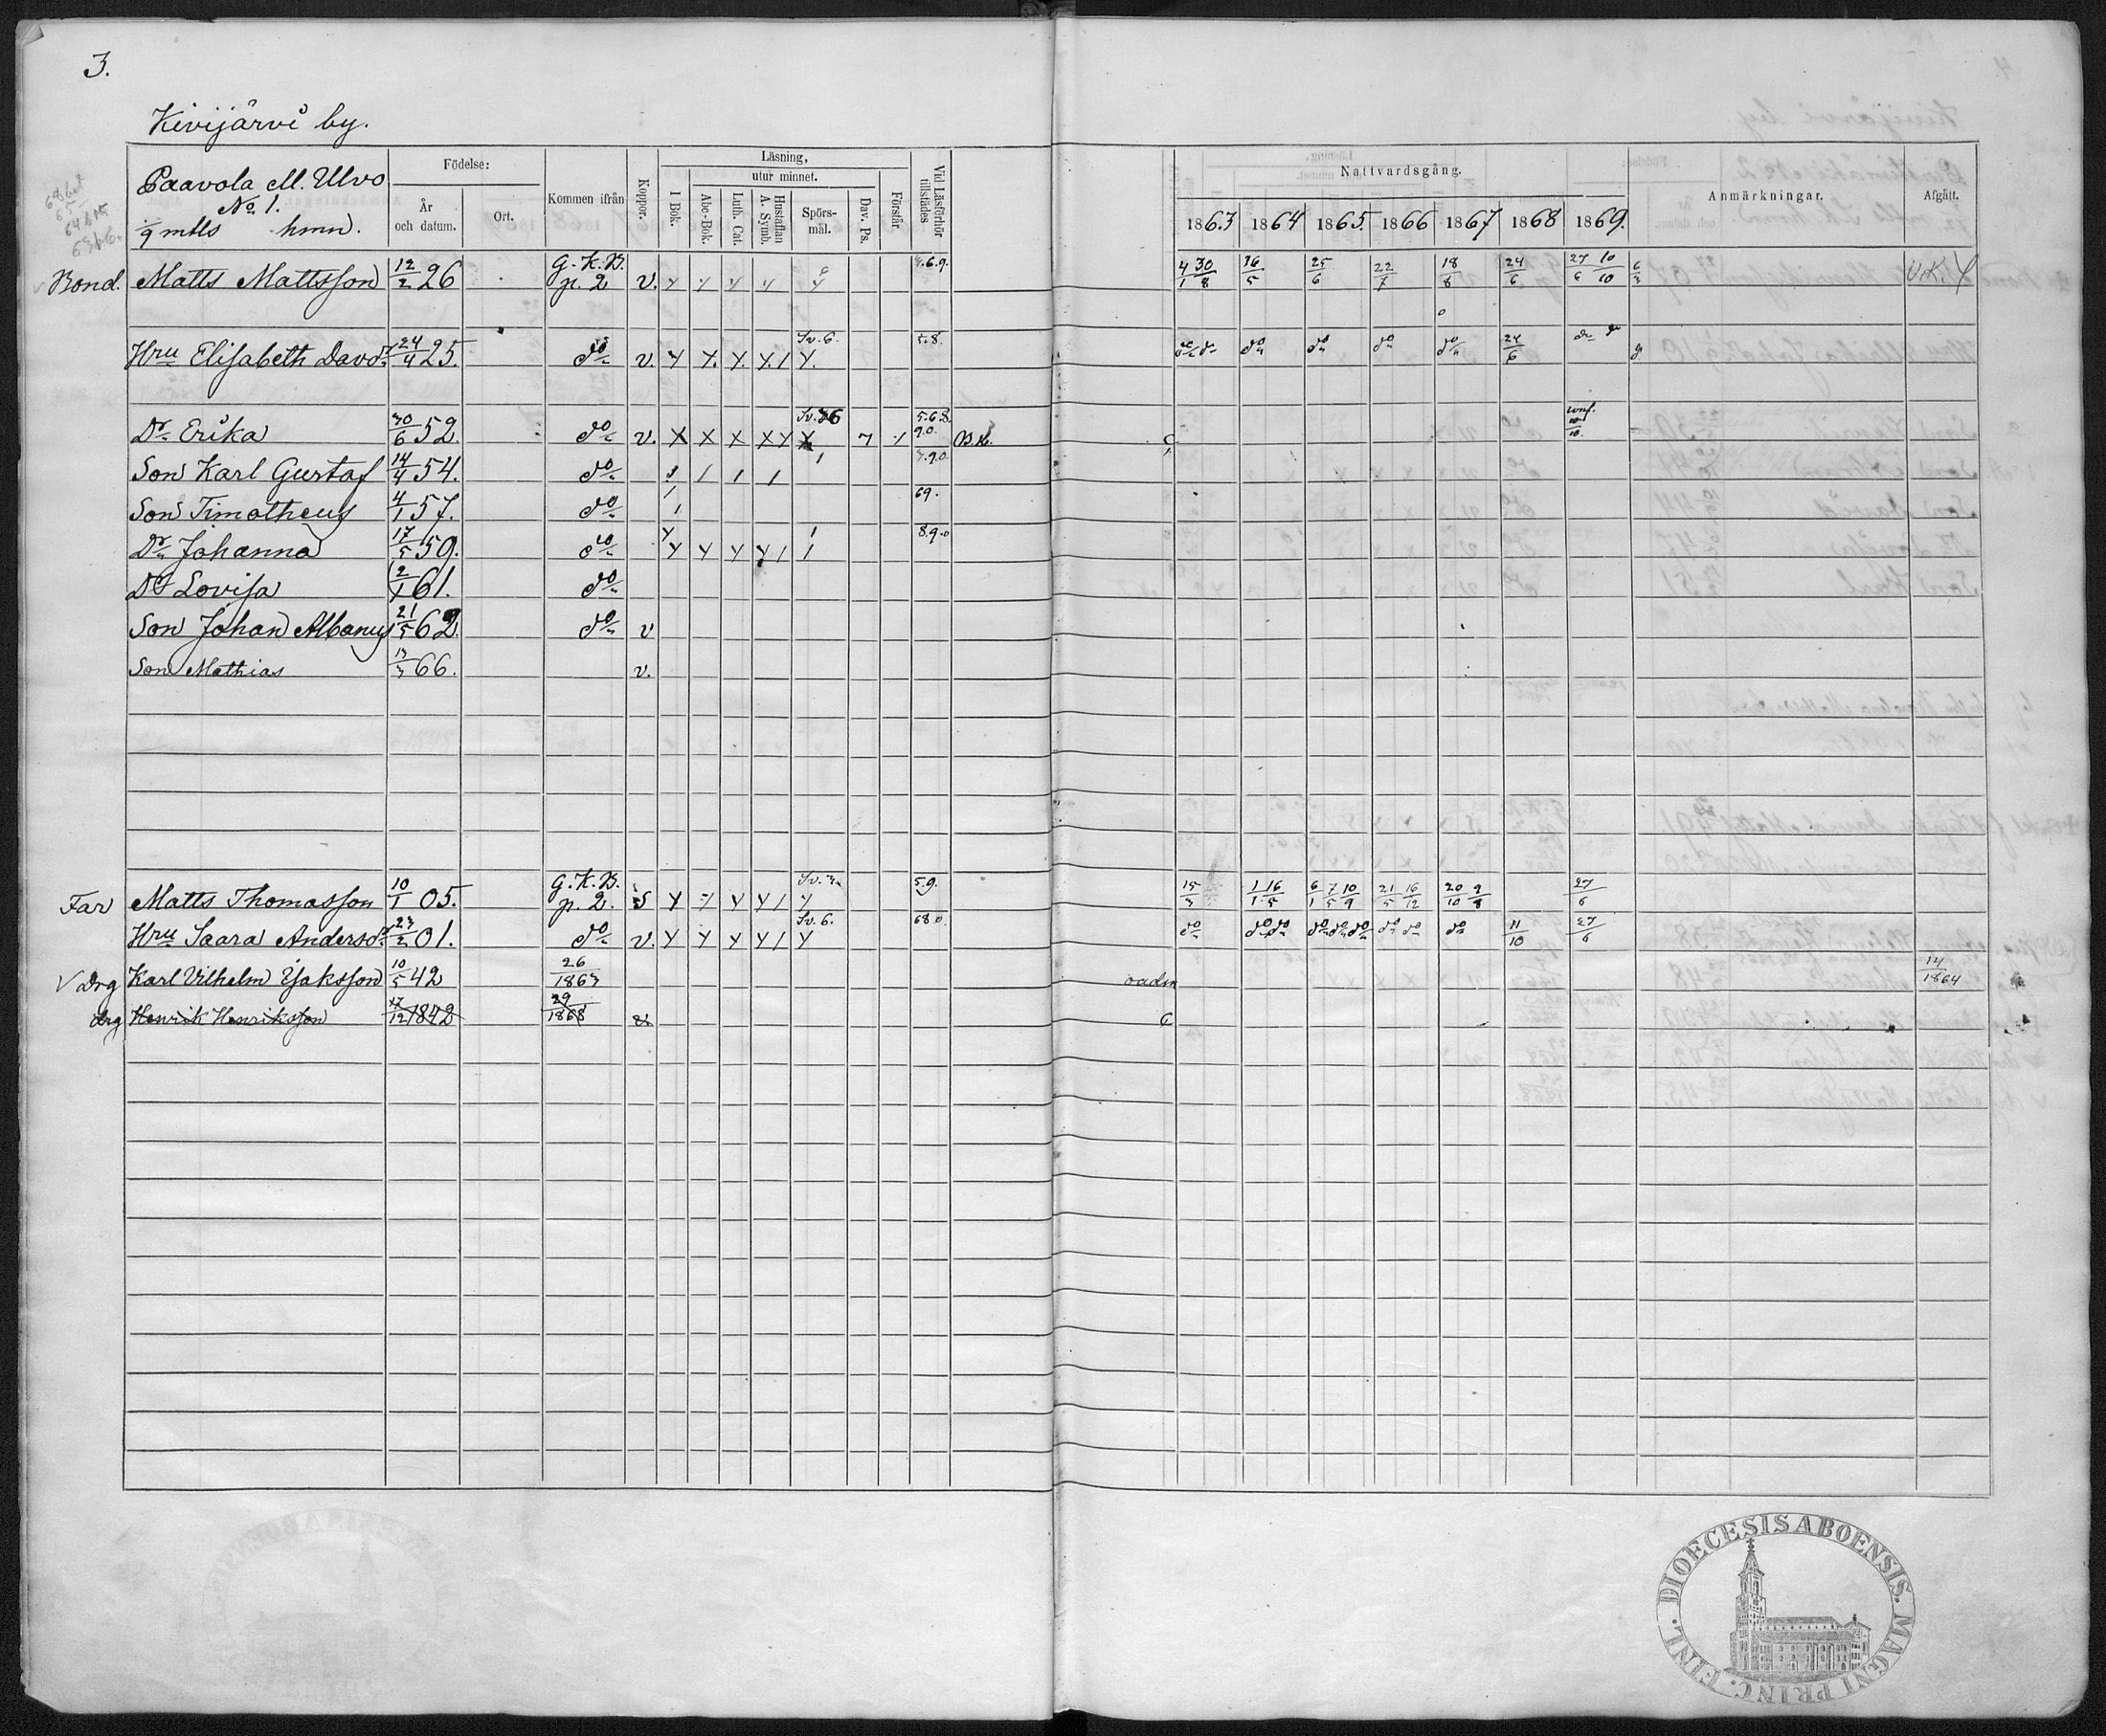 3.
Kivijärvi by.
Paavola M. Ulvo
No. 1.
mtls hmn.
Födelse:
År och datum.
Ort.
Kommen ifrån
Koppor.
Läsning,
I Bok.
utur minnet.
Abc-Bok.
Luth. Cat.
Hustaflan A. Symb.
Spörs-mål.
Dav. Ps.
Förstår
Vid Läsförhör tillstädes
Nattvardsgång.
1863 1864 1865 1866 1867 1868 1869.
Anmärkningar.
Afgått.
Bond. Matts Mattsson 12/2 26 G.K.B. p. 2 v. 4/1 30/8 16/5 25/6 22/7 18/8 24/6 27/6 10/10
Hru Elisabeth Davdr 24/4 25. do v. Sv. 6. 5.8. do do do do do 24/6
Dr Erika 30/6 52. do v. 5.6.8. 9.0. conf.
Son Karl Gustaf 14/4 54. do
Son Timotheus 4/1 57. do 69.
Dr Johanna 17/5 59. do 8.9.0
Dr Lovisa 2/1 61. do
Son Johan Albanus 21/5 62. do v
Son Mathias 13/3 66. v.
Far Matts Thomasson 10/1 05. G.K.B. p. 2. 5.9. 15/3 1/1 16/5 6/1 7/5 10/9 21/5 16/12 20/10 9/8 27/6
Hru Saara Andersdr 23/2 01. do v. Sv. 6. 680. do do do do do do do do do 11/10 27/6
v Drg Karl Vilhelm Isaksson 10/5 42 26/1863 14/1864
drg Henrik Henriksson 17/12 1842 29/1868
DIOECESIS ABOENSIS. MAGNI PRINC. FINL.